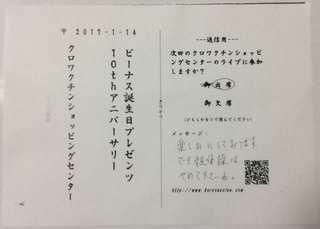 〒 2017-1-14
ビーナス誕生日プレゼンツ
10thアニバーサリー
クロワクチンショッピングセンター
---返信用---
次回のクロワクチンショッピ
ングセンターのライブに参加
しますか？
御出席
御欠席
(どちらかを○で囲んでください)
メッセージ:
楽しみにしております
でも粗体操は
やめてくださーい。
http://www.kurovaccine.com